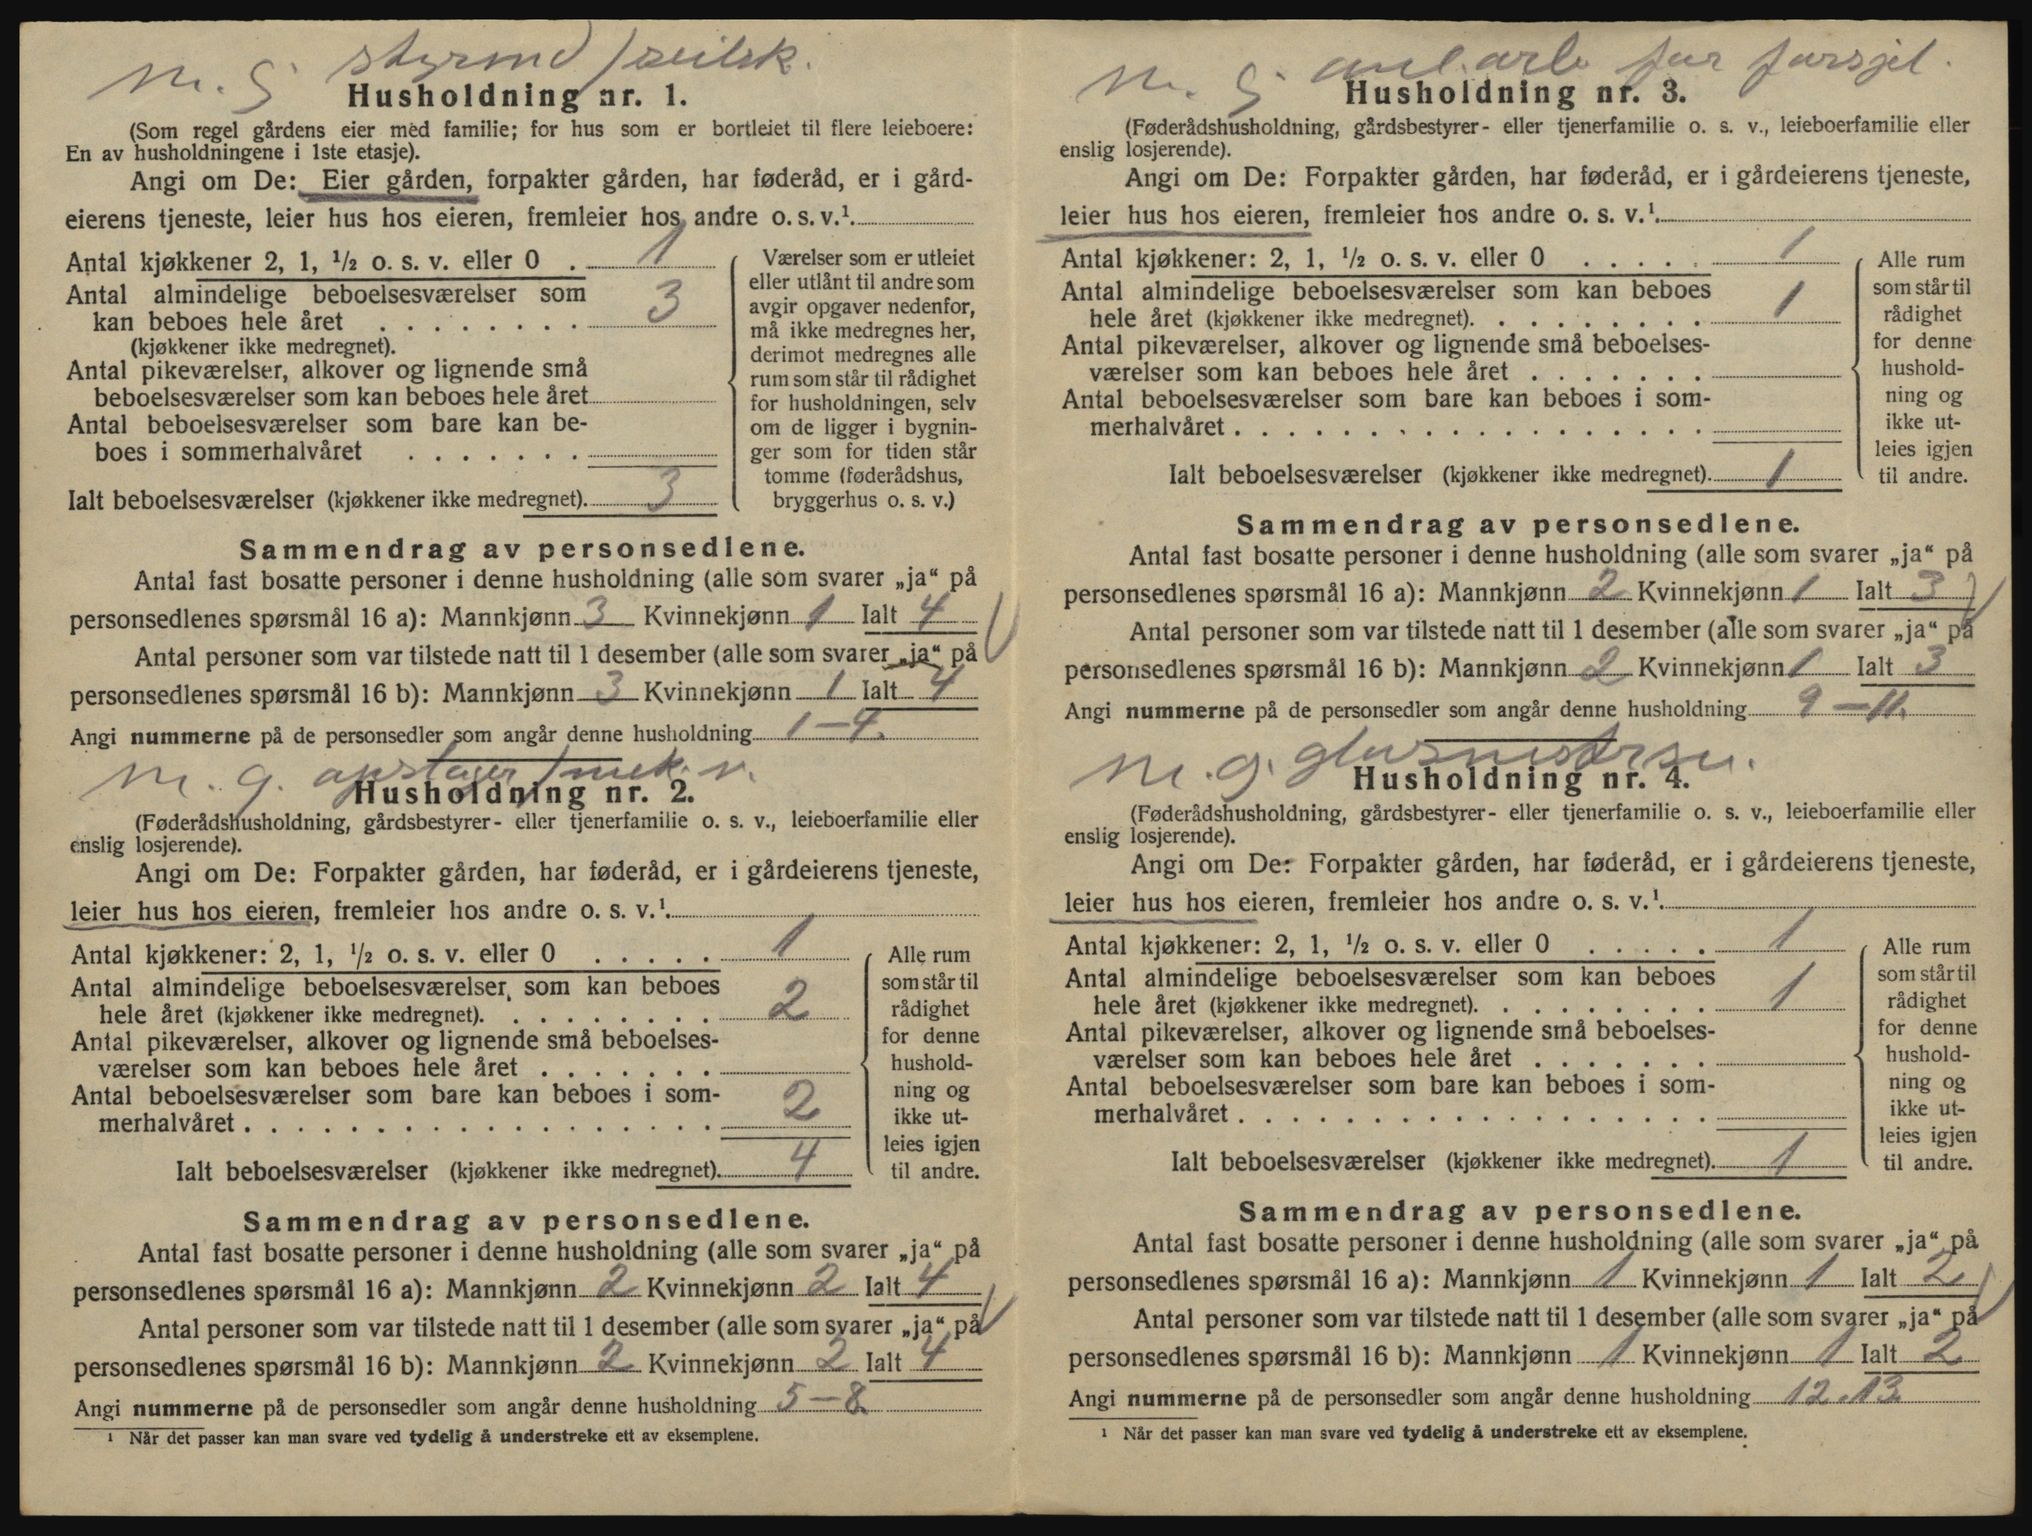 m. g styrmd / seilsk.
Husholdning nr. 1.
(Som regel gårdens eier med familie; for hus som er bortleiet til flere leieboere:
En av husholdningene i 1ste etasje).
Angi om De: Eier gården, forpakter gården, har føderåd, er i gård-
eierens tjeneste, leier hus hos eieren, fremleier hos andre o. s. v.¹.
Antal kjøkkener 2, 1, ½ o. s. v. eller 0 . 1
Antal almindelige beboelsesværelser som
kan beboes hele året . . . . . . . . 3
(kjøkkener ikke medregnet).
Antal pikeværelser, alkover og lignende små
beboelsesværelser som kan beboes hele året
Antal beboelsesværelser som bare kan be-
boes i sommerhalvåret . . . . . . .
Ialt beboelsesværelser (kjøkkener ikke medregnet). 3
Værelser som er utleiet
eller utlånt til andre som
avgir opgaver nedenfor,
må ikke medregnes her,
derimot medregnes alle
rum som står til rådighet
for husholdningen, selv
om de ligger i bygnin-
ger som for tiden står
tomme (føderådshus,
bryggerhus o. s. v.)
Sammendrag av personsedlene.
Antal fast bosatte personer i denne husholdning (alle som svarer „ja“ på
personsedlenes spørsmål 16 a): Mannkjønn 3 Kvinnekjønn 1 Ialt 4
Antal personer som var tilstede natt til 1 desember (alle som svarer „ja“ på
personsedlenes spørsmål 16 b): Mannkjønn 3 Kvinnekjønn 1 Ialt 4
Angi nummerne på de personsedler som angår denne husholdning 1-4.
m. g. opslager / mek. v.
Husholdning nr. 2.
(Føderådshusholdning, gårdsbestyrer- eller tjenerfamilie o. s. v., leieboerfamilie eller
enslig losjerende).
Angi om De: Forpakter gården, har føderåd, er i gårdeierens tjeneste,
leier hus hos eieren, fremleier hos andre o. s. v.¹.
Antal kjøkkener: 2, 1, ½ o. s. v. eller 0 . . . . . 1
Antal almindelige beboelsesværelser som kan beboes
hele året (kjøkkener ikke medregnet). . . . . . . . . 2
Antal pikeværelser, alkover og lignende små beboelses-
værelser som kan beboes hele året . . . . . . .
Antal beboelsesværelser som bare kan beboes i som-
merhalvåret . . . . . . . . . . . . . . . . . . . 2
Ialt beboelsesværelser (kjøkkener ikke medregnet). 4
Alle rum
som står til
rådighet
for denne
hushold-
ning og
ikke ut-
leies igjen
til andre.
Sammendrag av personsedlene.
Antal fast bosatte personer i denne husholdning (alle som svarer „ja“ på
personsedlenes spørsmål 16 a): Mannkjønn 2 Kvinnekjønn 2 Ialt 4
Antal personer som var tilstede natt til 1 desember (alle som svarer „ja“ på
personsedlenes spørsmål 16 b): Mannkjønn 2 Kvinnekjønn 2 Ialt 4
Angi nummerne på de personsedler som angår denne husholdning 5-8.
¹ Når det passer kan man svare ved tydelig å understreke ett av eksemplene.
m. g for
Husholdning nr. 3.
(Føderådshusholdning, gårdsbestyrer- eller tjenerfamilie o. s. v., leieboerfamilie eller
enslig losjerende).
Angi om De: Forpakter gården, har føderåd, er i gårdeierens tjeneste,
leier hus hos eieren, fremleier hos andre o. s. v.¹.
Antal kjøkkener: 2, 1, ½ o. s. v. eller 0 . . . . . 1
Antal almindelige beboelsesværelser som kan beboes
hele året (kjøkkener ikke medregnet). . . . . . . . . 1
Antal pikeværelser, alkover og lignende små beboelses-
værelser som kan beboes hele året . . . . . . .
Antal beboelsesværelser som bare kan beboes i som-
merhalvåret . . . . . . . . . . . . . . . . . . .
Ialt beboelsesværelser (kjøkkener ikke medregnet). 1
Alle rum
som står til
rådighet
for denne
hushold-
ning og
ikke ut-
leies igjen
til andre.
Sammendrag av personsedlene.
Antal fast bosatte personer i denne husholdning (alle som svarer „ja“ på
personsedlenes spørsmål 16 a): Mannkjønn 2 Kvinnekjønn 1 Ialt 3
Antal personer som var tilstede natt til 1 desember (alle som svarer „ja“ på
personsedlenes spørsmål 16 b): Mannkjønn 2 Kvinnekjønn 1 Ialt 3
Angi nummerne på de personsedler som angår denne husholdning 9-11.
m. g.
Husholdning nr. 4.
(Føderådshusholdning, gårdsbestyrer- eller tjenerfamilie o. s. v., leieboerfamilie eller
enslig losjerende).
Angi om De: Forpakter gården, har føderåd, er i gårdeierens tjeneste,
leier hus hos eieren, fremleier hos andre o. s. v.¹.
Antal kjøkkener: 2, 1, ½ o. s. v. eller 0 . . . . . 1
Antal almindelige beboelsesværelser som kan beboes
hele året (kjøkkener ikke medregnet). . . . . . . . . 1
Antal pikeværelser, alkover og lignende små beboelses-
værelser som kan beboes hele året . . . . . . .
Antal beboelsesværelser som bare kan beboes i som-
merhalvåret . . . . . . . . . . . . . . . . . . .
Ialt beboelsesværelser (kjøkkener ikke medregnet). 1
Alle rum
som står til
rådighet
for denne
hushold-
ning og
ikke ut-
leies igjen
til andre.
Sammendrag av personsedlene.
Antal fast bosatte personer i denne husholdning (alle som svarer „ja“ på
personsedlenes spørsmål 16 a): Mannkjønn 1 Kvinnekjønn 1 Ialt 2
Antal personer som var tilstede natt til 1 desember (alle som svarer „ja“ på
personsedlenes spørsmål 16 b): Mannkjønn 1 Kvinnekjønn 1 Ialt 2
Angi nummerne på de personsedler som angår denne husholdning 12.13
¹ Når det passer kan man svare ved tydelig å understreke ett av eksemplene.